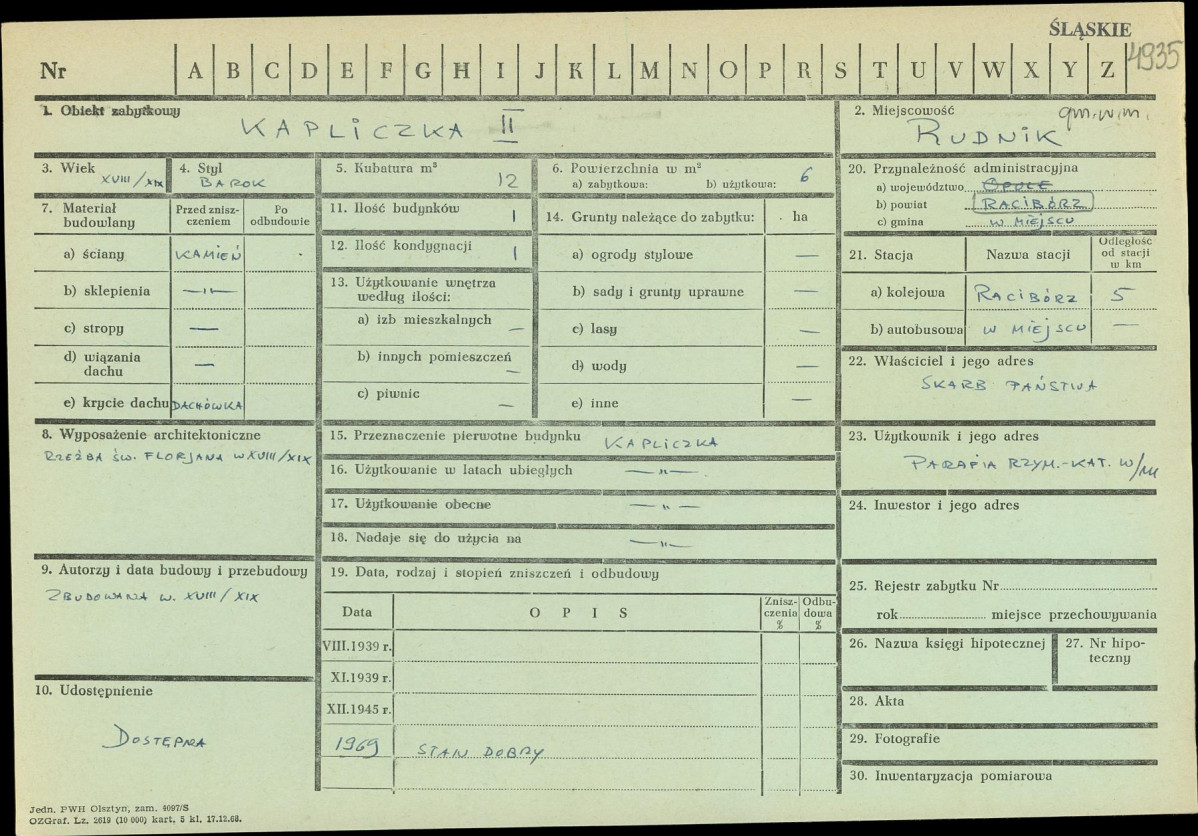 ŚLĄSKIE
Nr A B C D E F G H I J K L M N O P R S T U V W X Y Z 4935
1. Obiekt zabytkowy
KAPLICZKA II
2. Miejscowość gm.w.m.
RUDNIK
3. Wiek
XVIII/XIX
4. Styl
BAROK
5. Kubatura m³
12
6. Powierzchnia w m²
a) zabytkowa: b) użytkowa: 6
20. Przynależność administracyjna
a) województwo OPOLE
b) powiat RACIBÓRZ
c) gmina W MIEJSCU
7. Materiał budowlany
Przed zniszczeniem
Po odbudowie
a) ściany KAMIEŃ
b) sklepienia —"—
c) stropy —
d) wiązania dachu —
e) krycie dachu DACHÓWKA
11. Ilość budynków 1
12. Ilość kondygnacji 1
13. Użytkowanie wnętrza
według ilości:
a) izb mieszkalnych —
b) innych pomieszczeń —
c) piwnic —
14. Grunty należące do zabytku: ha
a) ogrody stylowe —
b) sady i grunty uprawne —
c) lasy —
d) wody —
e) inne —
21. Stacja Nazwa stacji Odległość od stacji w km
a) kolejowa RACIBÓRZ 5
b) autobusowa W MIEJSCU —
22. Właściciel i jego adres
SKARB PAŃSTWA
8. Wyposażenie architektoniczne
RZEŹBA ŚW. FLORJANA W XVIII/XIX
15. Przeznaczenie pierwotne budynku KAPLICZKA
16. Użytkowanie w latach ubiegłych —"—
17. Użytkowanie obecne —"—
18. Nadaje się do użycia na —"—
23. Użytkownik i jego adres
PARAFIA RZYM.-KAT. W/M
24. Inwestor i jego adres
9. Autorzy i data budowy i przebudowy
ZBUDOWANA W. XVIII/XIX
19. Data, rodzaj i stopień zniszczeń i odbudowy
Data OPIS Zniszczenia % Odbudowa %
VIII.1939 r.
XI.1939 r.
XII.1945 r.
1969 STAN DOBRY
25. Rejestr zabytku Nr
rok miejsce przechowywania
26. Nazwa księgi hipotecznej
27. Nr hipoteczny
10. Udostępnienie
DOSTĘPNA
28. Akta
29. Fotografie
30. Inwentaryzacja pomiarowa
Jedn. PWH Olsztyn, zam. 4097/S
OZGraf. Lz. 2619 (10 000) kart. 5 kl. 17.12.68.